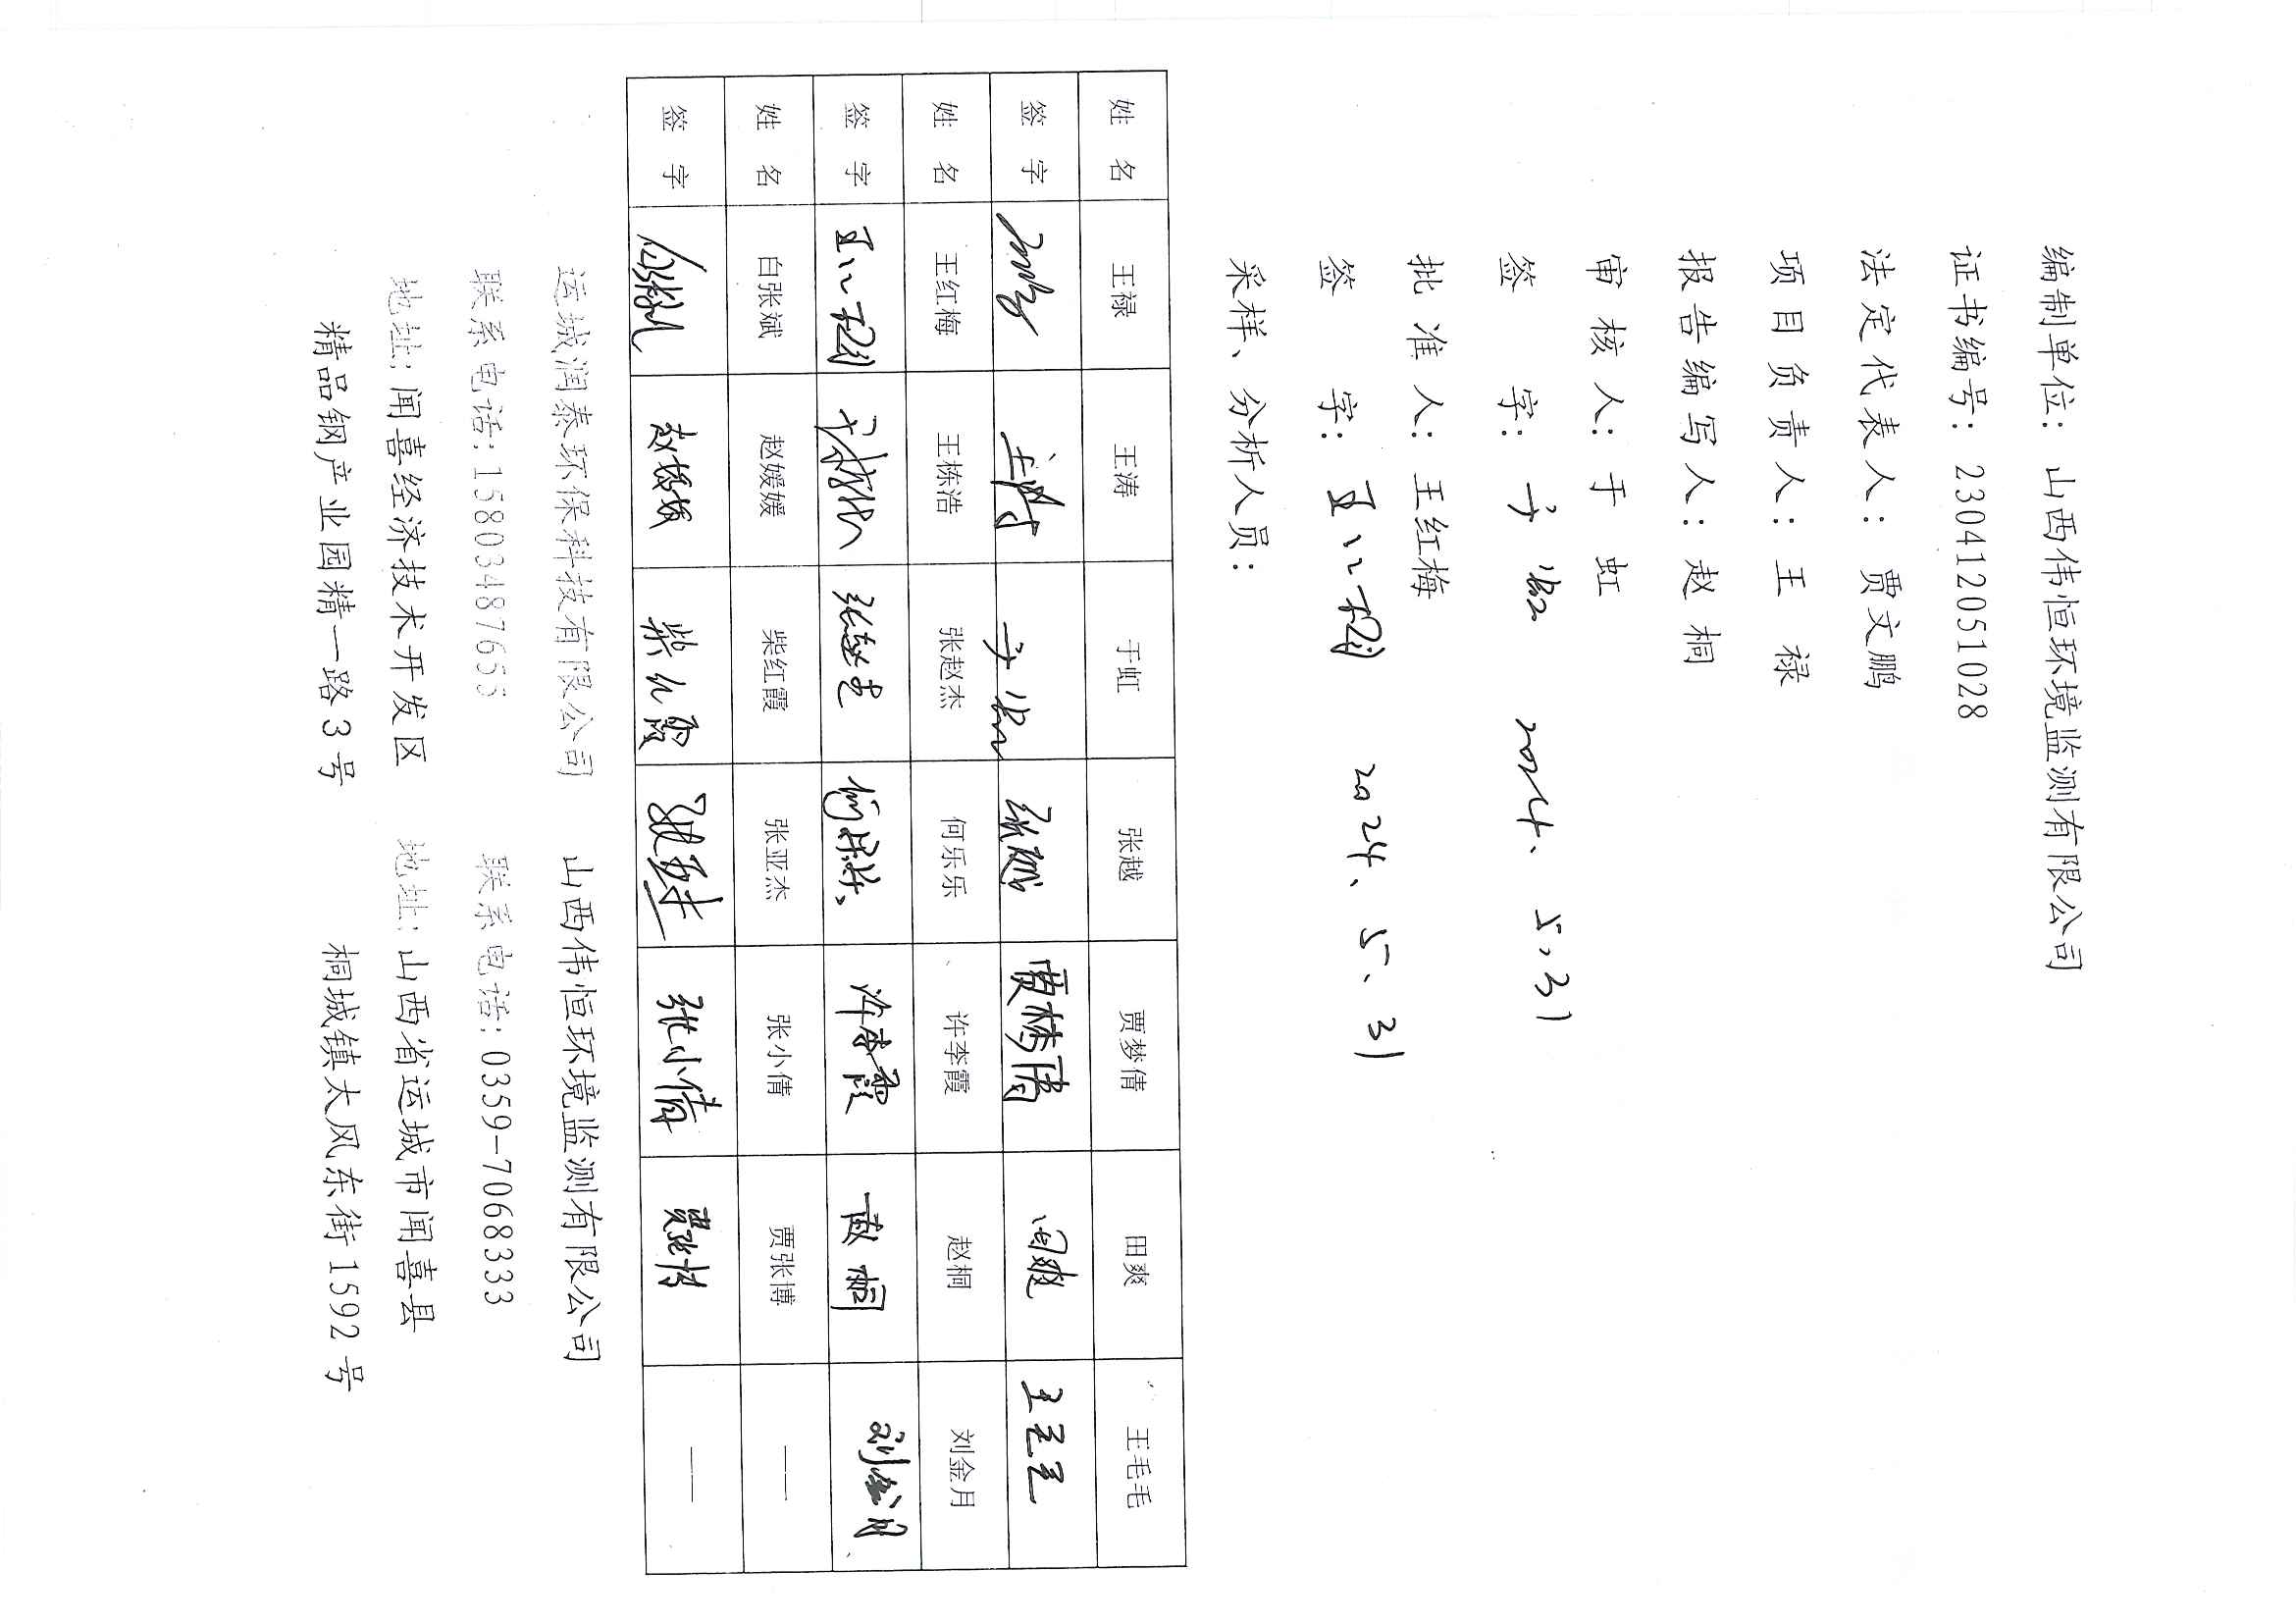 编制单位：山西伟恒环境监测有限公司
证书编号：230412051028
法定代表人：贾文鹏
项目负责人：王禄
报告编写人：赵桐
审核人：于虹
签字：于虹 2024、5、31
批准人：王红梅
签字：王红梅 2024、5、31
采样、分析人员：
姓名 王禄 王涛 于虹 张越 贾梦倩 田爽 王毛毛
签字 王禄 王涛 于虹 张越 贾梦倩 田爽 王毛毛
姓名 王红梅 王栋浩 张赵杰 何乐乐 许李霞 赵桐 刘金月
签字 王红梅 王栋浩 张赵杰 何乐乐 许李霞 赵桐 刘金月
姓名 白张斌 赵媛媛 柴红霞 张亚杰 张小倩 贾张博 ——
签字 白张斌 赵媛媛 柴红霞 张亚杰 张小倩 贾张博 ——
运城润泰环保科技有限公司 山西伟恒环境监测有限公司
联系电话：15803487655 联系电话：0359-7068333
地址：闻喜经济技术开发区 地址：山西省运城市闻喜县
精品钢产业园精一路3号 桐城镇太风东街1592号